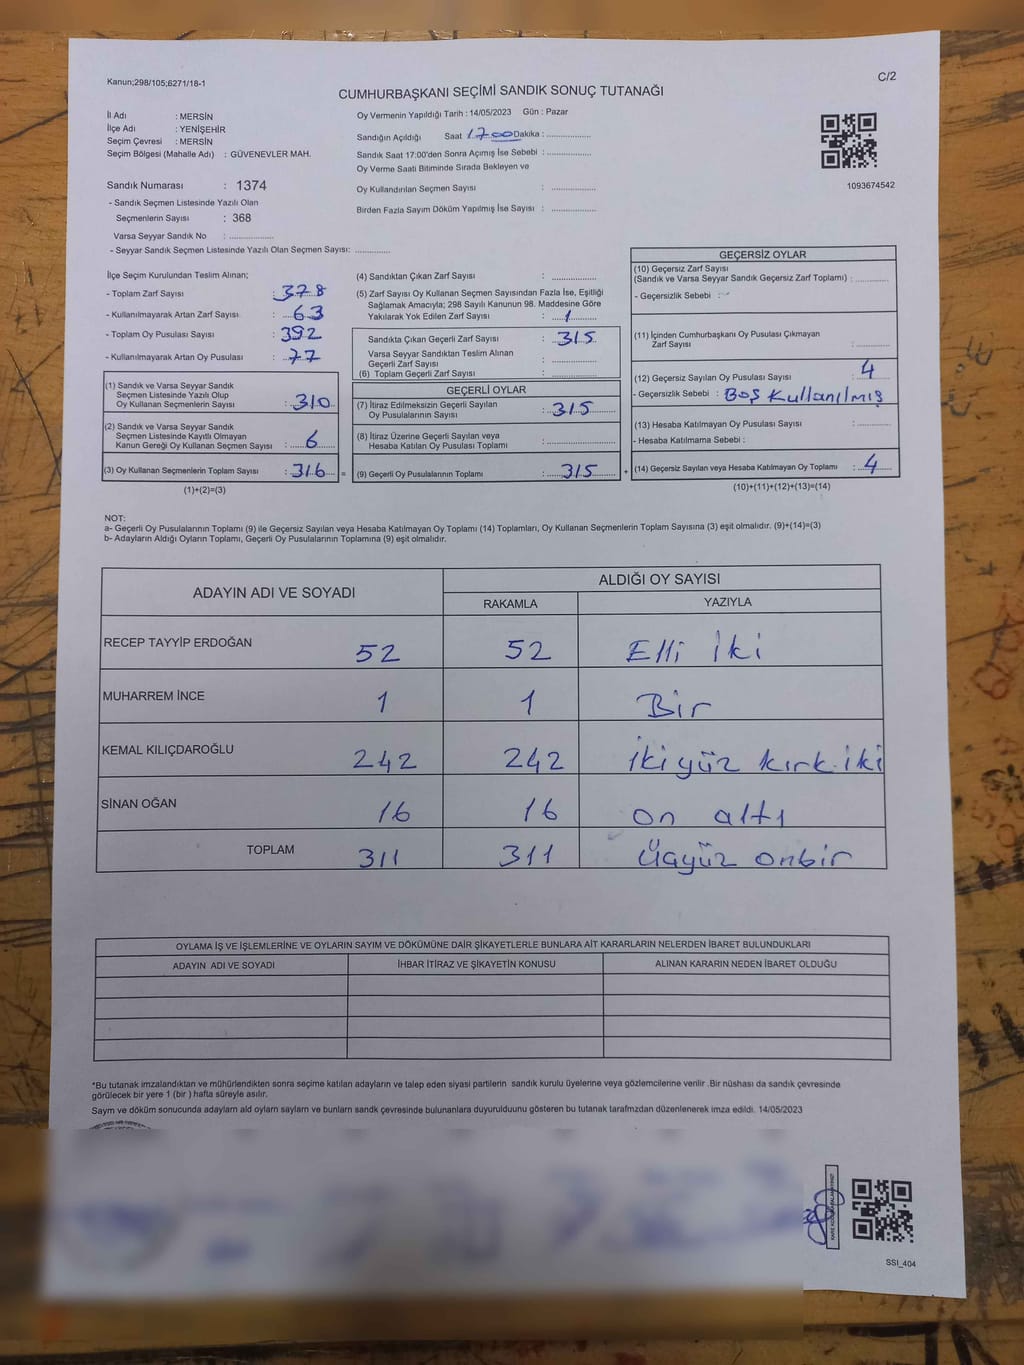 Kanun;298/105;6271/18-1
C/2
CUMHURBAŞKANI SEÇİMİ SANDIK SONUÇ TUTANAĞI
İl Adı : MERSİN
İlçe Adı : YENİŞEHİR
Seçim Çevresi : MERSİN
Seçim Bölgesi (Mahalle Adı) : GÜVENEVLER MAH.
Oy Vermenin Yapıldığı Tarih : 14/05/2023 Gün : Pazar
Sandığın Açıldığı Saat 17.00 Dakika : ..............
Sandık Saat 17:00'den Sonra Açımış İse Sebebi : ..............
Oy Verme Saati Bitiminde Sırada Bekleyen ve
Oy Kullandırılan Seçmen Sayısı : ..............
Birden Fazla Sayım Döküm Yapılmış İse Sayısı : ..............
1093674542
Sandık Numarası : 1374
- Sandık Seçmen Listesinde Yazılı Olan
Seçmenlerin Sayısı : 368
Varsa Seyyar Sandık No : ..............
- Seyyar Sandık Seçmen Listesinde Yazılı Olan Seçmen Sayısı: ............
İlçe Seçim Kurulundan Teslim Alınan;
- Toplam Zarf Sayısı : 378
- Kullanılmayarak Artan Zarf Sayısı : 63
- Toplam Oy Pusulası Sayısı : 392
- Kullanılmayarak Artan Oy Pusulası : 77
(1) Sandık ve Varsa Seyyar Sandık
Seçmen Listesinde Yazılı Olup
Oy Kullanan Seçmenlerin Sayısı : 310
(2) Sandık ve Varsa Seyyar Sandık
Seçmen Listesinde Kayıtlı Olmayan
Kanun Gereği Oy Kullanan Seçmen Sayısı : 6
(3) Oy Kullanan Seçmenlerin Toplam Sayısı : 316 =
(1)+(2)=(3)
(4) Sandıktan Çıkan Zarf Sayısı : ..............
(5) Zarf Sayısı Oy Kullanan Seçmen Sayısından Fazla İse, Eşitliği
Sağlamak Amacıyla; 298 Sayılı Kanunun 98. Maddesine Göre
Yakılarak Yok Edilen Zarf Sayısı : 1
Sandıkta Çıkan Geçerli Zarf Sayısı : 315
Varsa Seyyar Sandıktan Teslim Alınan
Geçerli Zarf Sayısı : ..............
(6) Toplam Geçerli Zarf Sayısı : ..............
GEÇERLİ OYLAR
(7) İtiraz Edilmeksizin Geçerli Sayılan
Oy Pusulalarının Sayısı : 315
(8) İtiraz Üzerine Geçerli Sayılan veya
Hesaba Katılan Oy Pusulası Toplamı : ..............
(9) Geçerli Oy Pusulalarının Toplamı : 315 +
GEÇERSİZ OYLAR
(10) Geçersiz Zarf Sayısı
(Sandık ve Varsa Seyyar Sandık Geçersiz Zarf Toplamı) : ............
- Geçersizlik Sebebi :
(11) İçinden Cumhurbaşkanı Oy Pusulası Çıkmayan
Zarf Sayısı : ............
(12) Geçersiz Sayılan Oy Pusulası Sayısı : 4
- Geçersizlik Sebebi : Boş Kullanılmış
(13) Hesaba Katılmayan Oy Pusulası Sayısı : ............
- Hesaba Katılmama Sebebi :
(14) Geçersiz Sayılan veya Hesaba Katılmayan Oy Toplamı : 4
(10)+(11)+(12)+(13)=(14)
NOT:
a- Geçerli Oy Pusulalarının Toplamı (9) ile Geçersiz Sayılan veya Hesaba Katılmayan Oy Toplamı (14) Toplamları, Oy Kullanan Seçmenlerin Toplam Sayısına (3) eşit olmalıdır. (9)+(14)=(3)
b- Adayların Aldığı Oyların Toplamı, Geçerli Oy Pusulalarının Toplamına (9) eşit olmalıdır.
ADAYIN ADI VE SOYADI ALDIĞI OY SAYISI
RAKAMLA YAZIYLA
RECEP TAYYİP ERDOĞAN 52 52 Elli İki
MUHARREM İNCE 1 1 Bir
KEMAL KILIÇDAROĞLU 242 242 İkiyüz kırk iki
SİNAN OĞAN 16 16 on altı
TOPLAM 311 311 Üçyüz onbir
OYLAMA İŞ VE İŞLEMLERİNE VE OYLARIN SAYIM VE DÖKÜMÜNE DAİR ŞİKAYETLERLE BUNLARA AİT KARARLARIN NELERDEN İBARET BULUNDUKLARI
ADAYIN ADI VE SOYADI İHBAR İTİRAZ VE ŞİKAYETİN KONUSU ALINAN KARARIN NEDEN İBARET OLDUĞU
*Bu tutanak imzalandıktan ve mühürlendikten sonra seçime katılan adayların ve talep eden siyasi partilerin sandık kurulu üyelerine veya gözlemcilerine verilir .Bir nüshası da sandık çevresinde
görülecek bir yere 1 (bir ) hafta süreyle asılır.
Saym ve döküm sonucunda adaylarn ald oylarn saylarn ve bunlarn sandk çevresinde bulunanlara duyurulduunu gösteren bu tutanak tarafmzdan düzenlenerek imza edildi. 14/05/2023
SSI_404